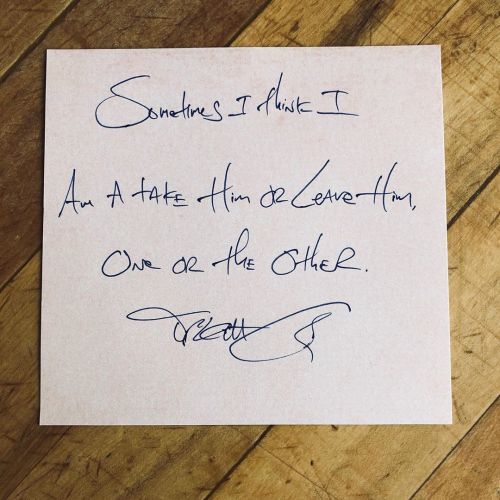 Sometimes I think I
Am A tAKE Him OR LeAve Him,
One OR the OtHeR.